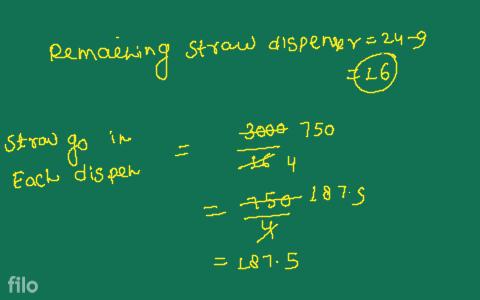 Remaining straw dispenser = 24-9
= 16
Straw go in
Each dispen
= 3000 750
16 4
= 750 187.5
4
= 187.5
filo